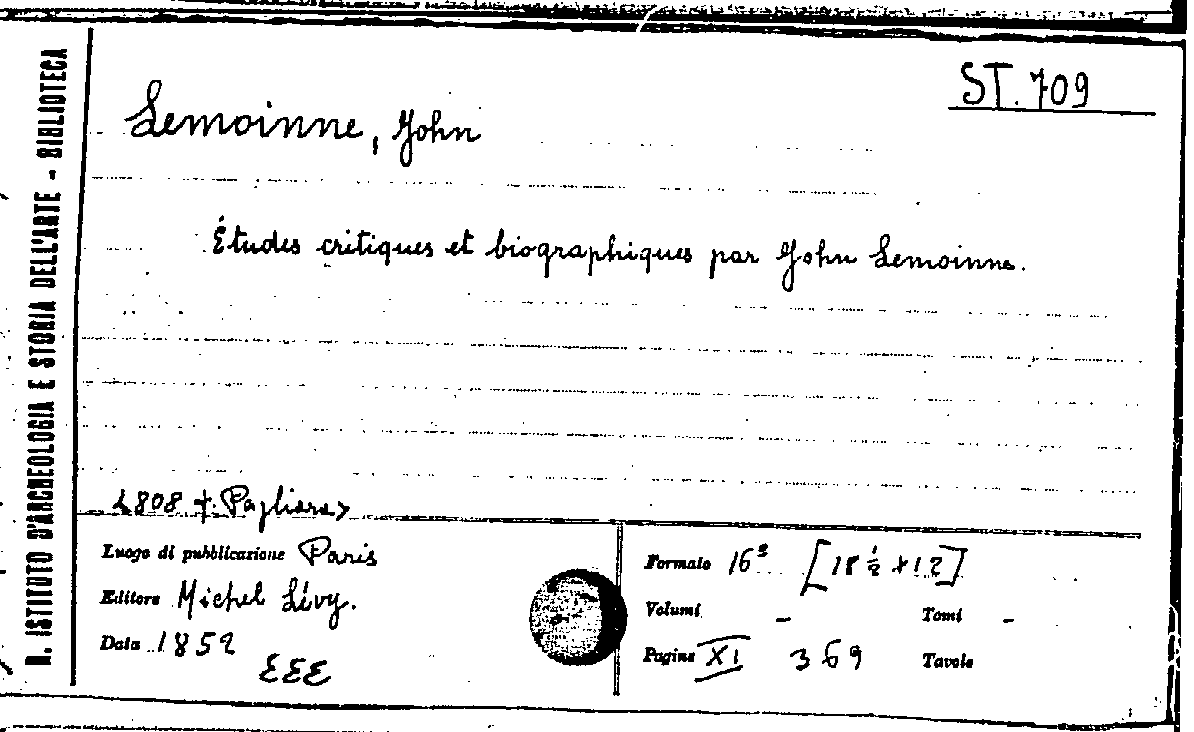 R. ISTITUTO D'ARCHEOLOGIA E STORIA DELL'ARTE - BIBLIOTECA
ST. 709
Lemoinne, John
Études critiques et biographiques par John Lemoinne.
<808 + Pagliara>
Luogo di pubblicazione Paris
Editore Michel Lévy.
Data 1852
EEE
Formato 16° [18 ½ x 12]
Volumi - Tomi -
Pagine XI 369 Tavole